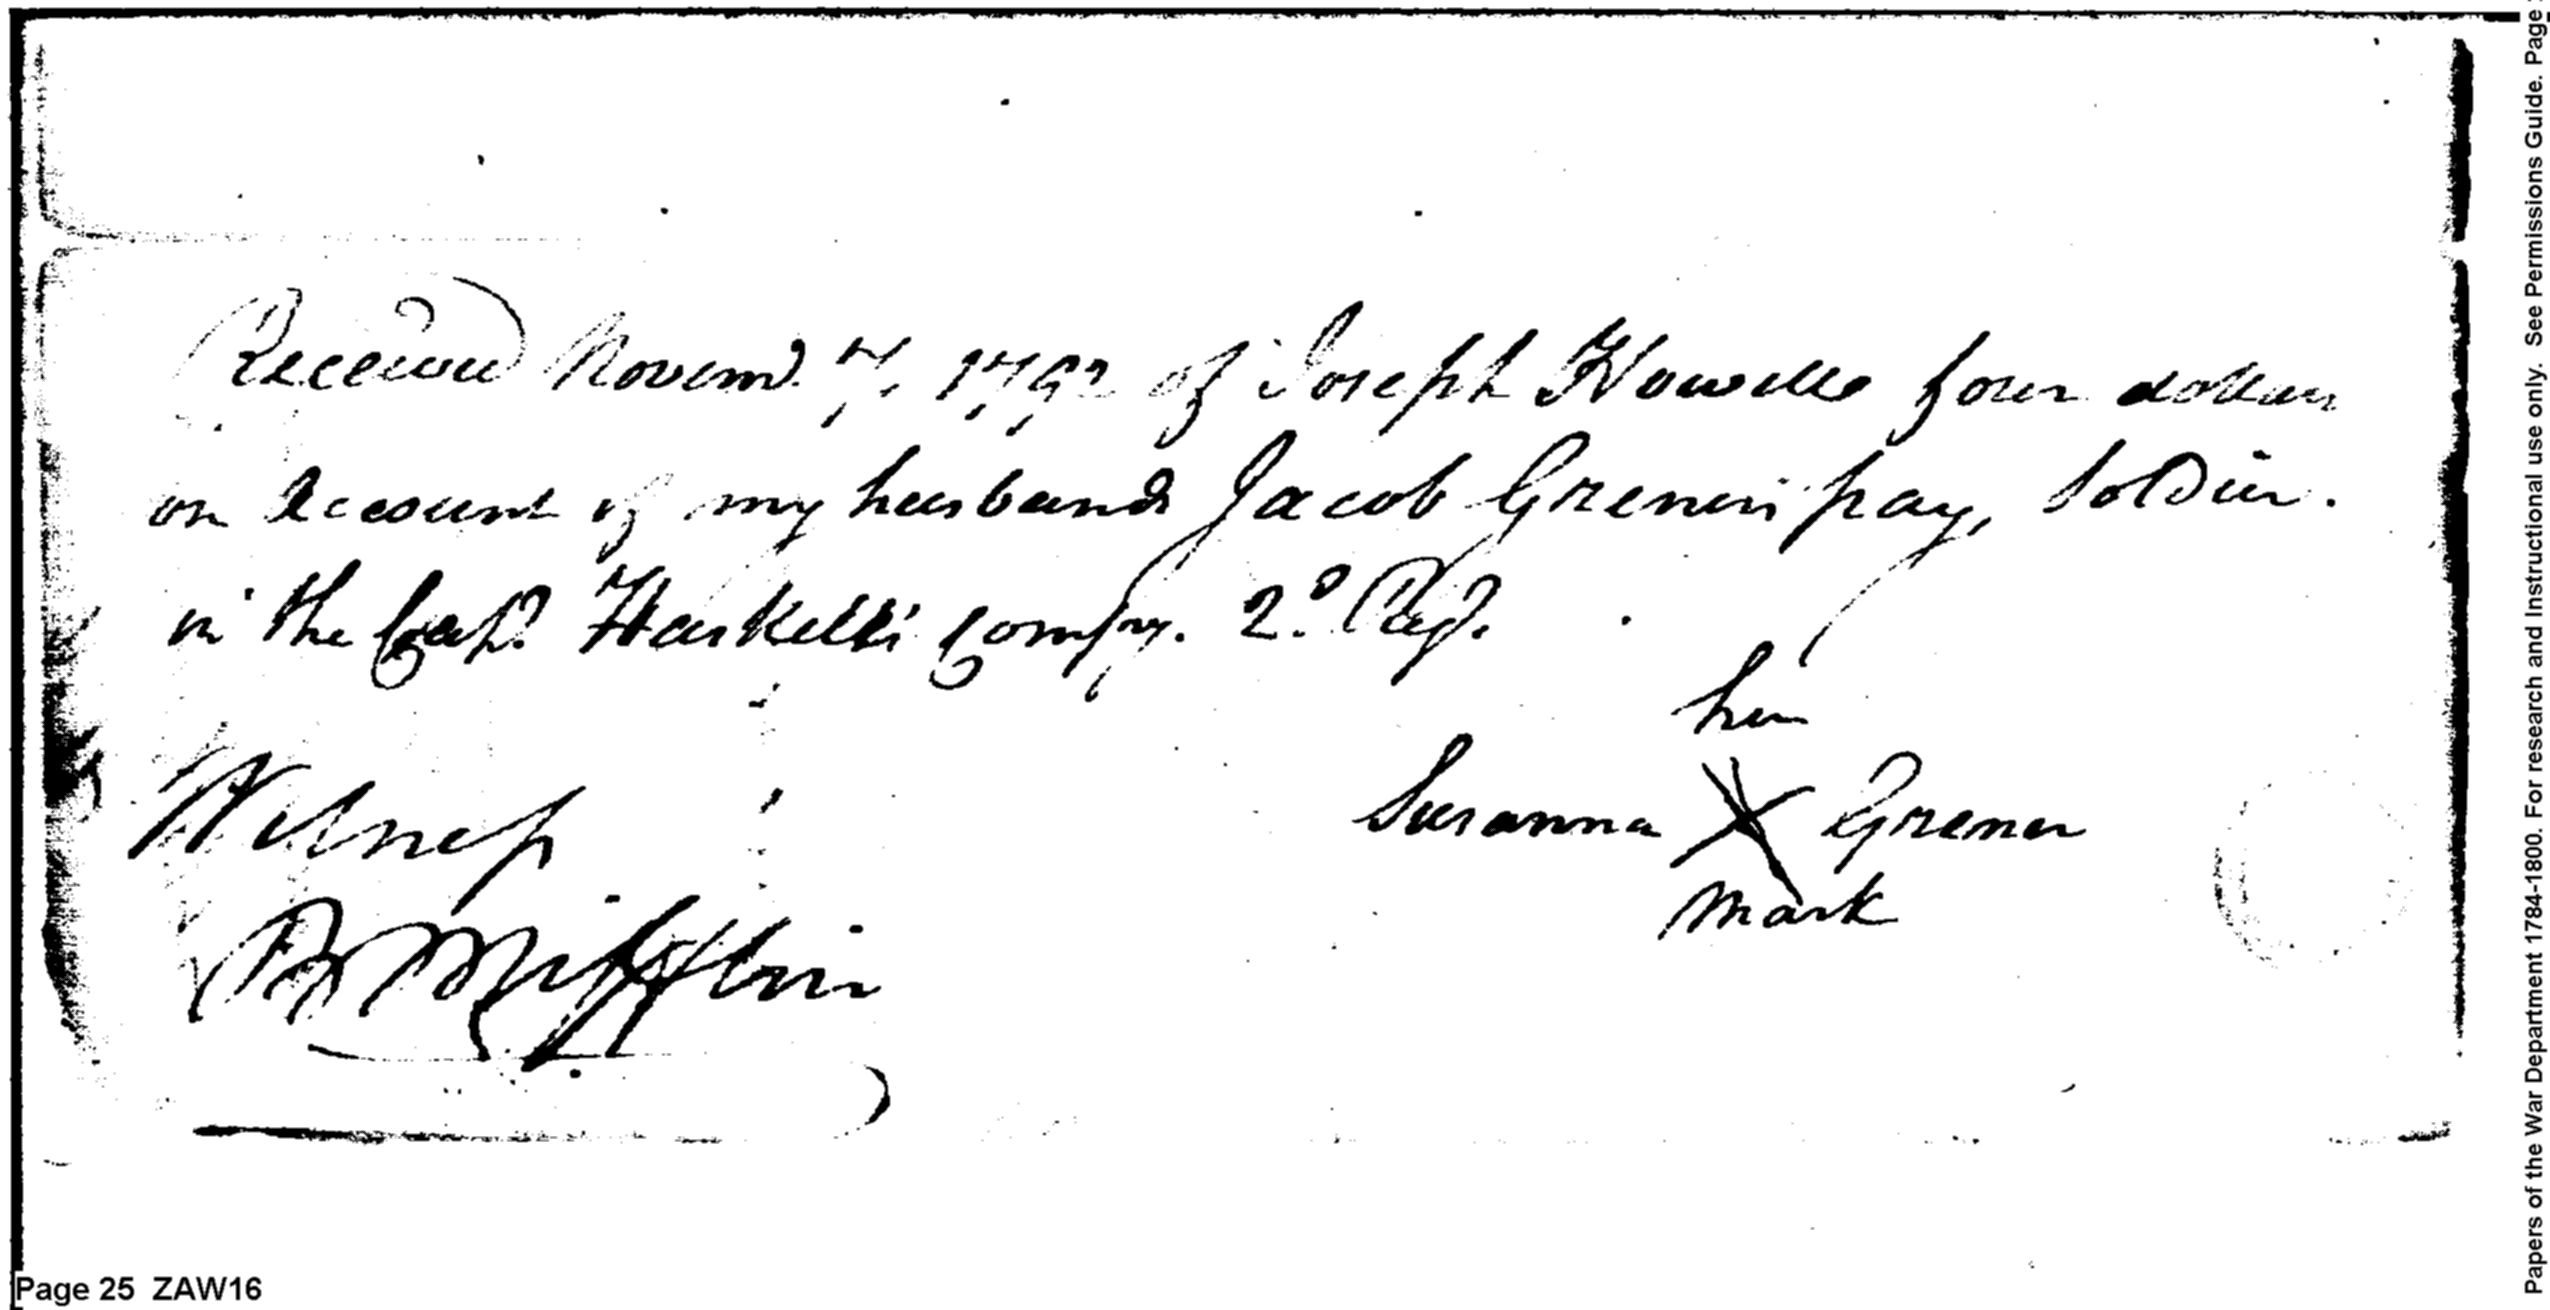 Received Novem.r 7, 1792 of Joseph Howell four dollars
on Account of my husband Jacob Grener's pay, Soldier.
in the Cap.t Haskell's Compy. 2.d Reg.t
her
Witness Susanna X Grener
mark
B Mifflin
Page 25 ZAW16
Papers of the War Department 1784-1800. For research and Instructional use only. See Permissions Guide. Page